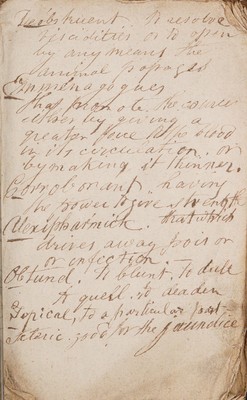 Deobstruent. to resolve
viscidities or to open
by any means the
animal passages
Emmenagogues
has promote the courses
either by giving a
greater force to the blood
in its circulation or
by making it thinner.
Corroborant. having
the power to give strength
Alexipharmick. that which
drives away poison
or infection.
Obtund. To blunt. To dull
To quell. to deaden
Topical, to a particular part
Icteric. good for the Jaundice